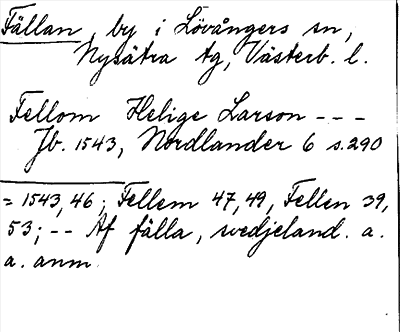 Fällan, by i Lövångers sn,
Nysätra tg, Västerb. l.
Fellom Helige Larson - - -
Jb. 1543, Nordlander 6 s. 290
= 1543, 46; Fellem 47, 49, Fellen 39,
53; -- Af fälla, svedjeland. a.
a. anm.